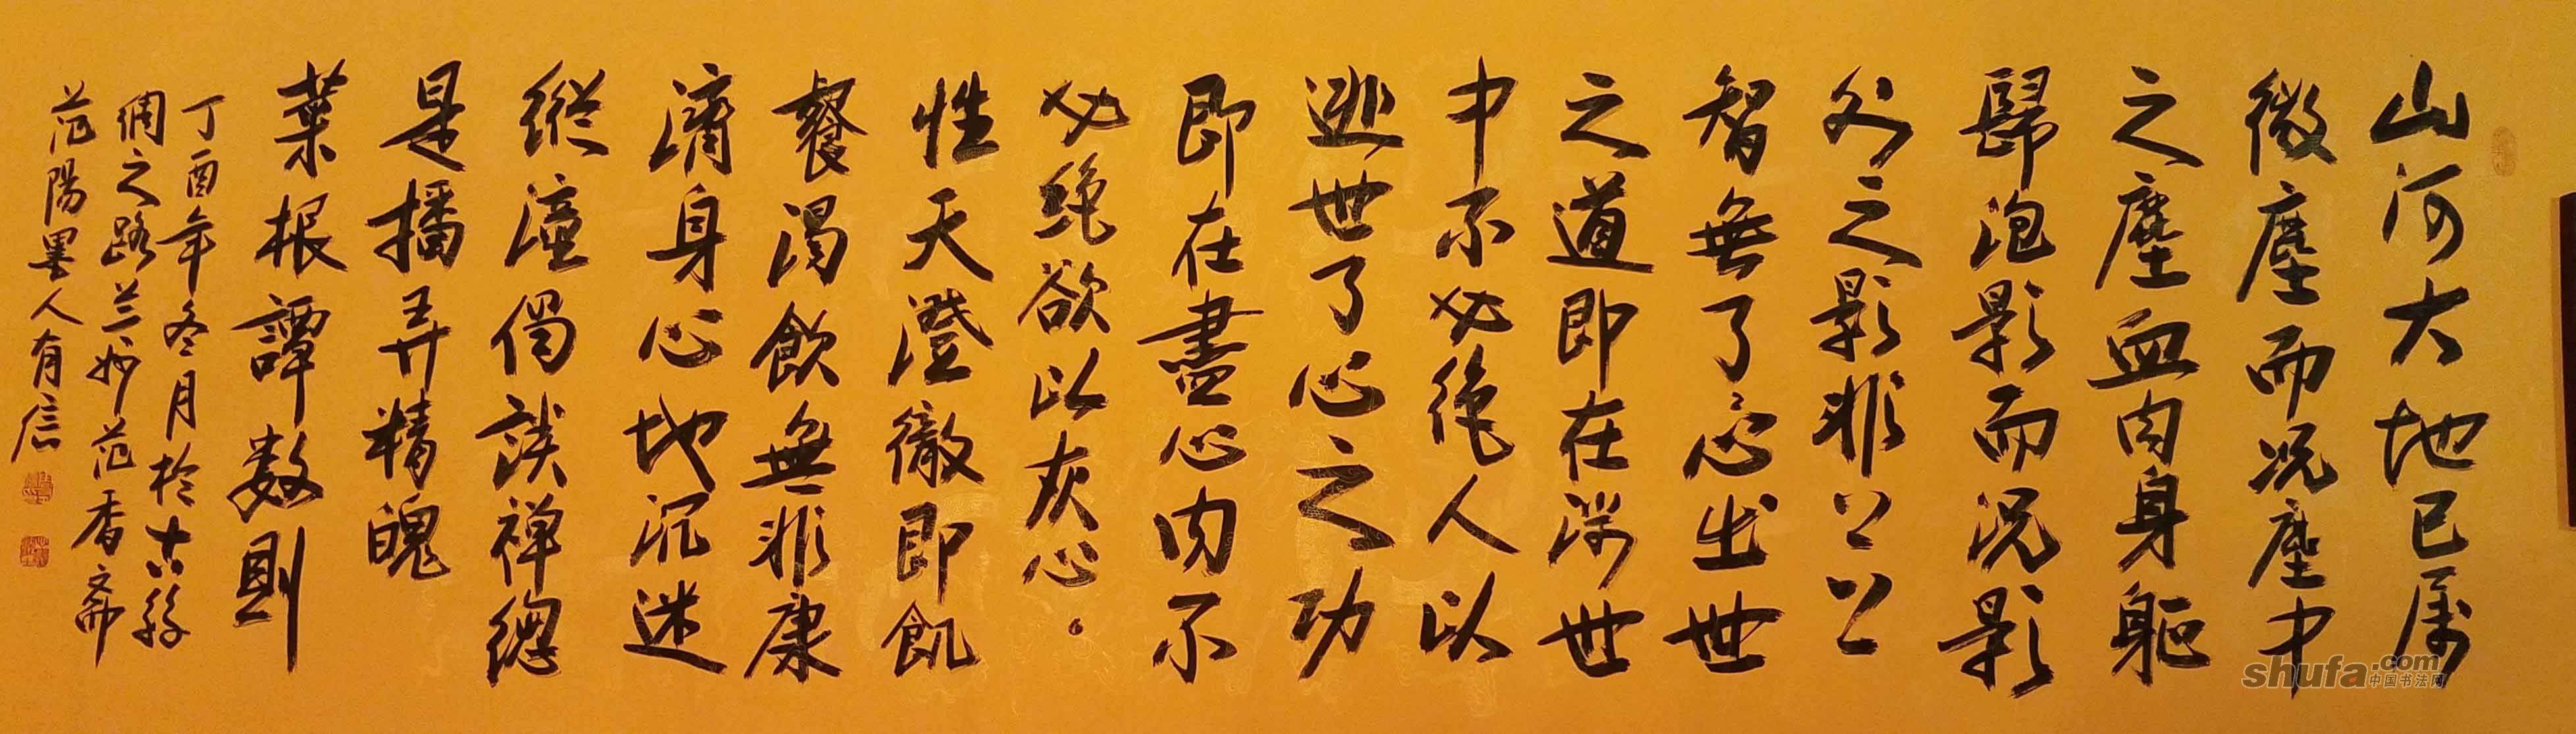 山河大地已属
微塵而况塵中
之塵血肉身軀
歸泡影而况影
外之影非上上
智無了心出世
之道即在涉世
中不必绝人以
逃世了心之功
即在盡心内不
必绝欲以灰心
性天澄徹即飢
餐渴飲無非康
濟身心地沉迷
縱演偈談禅總
是播弄精魄
菜根譚數則
丁酉年冬月於古絲
绸之路兰州范香斋
范陽墨人有信
shufa.com
中国书法网